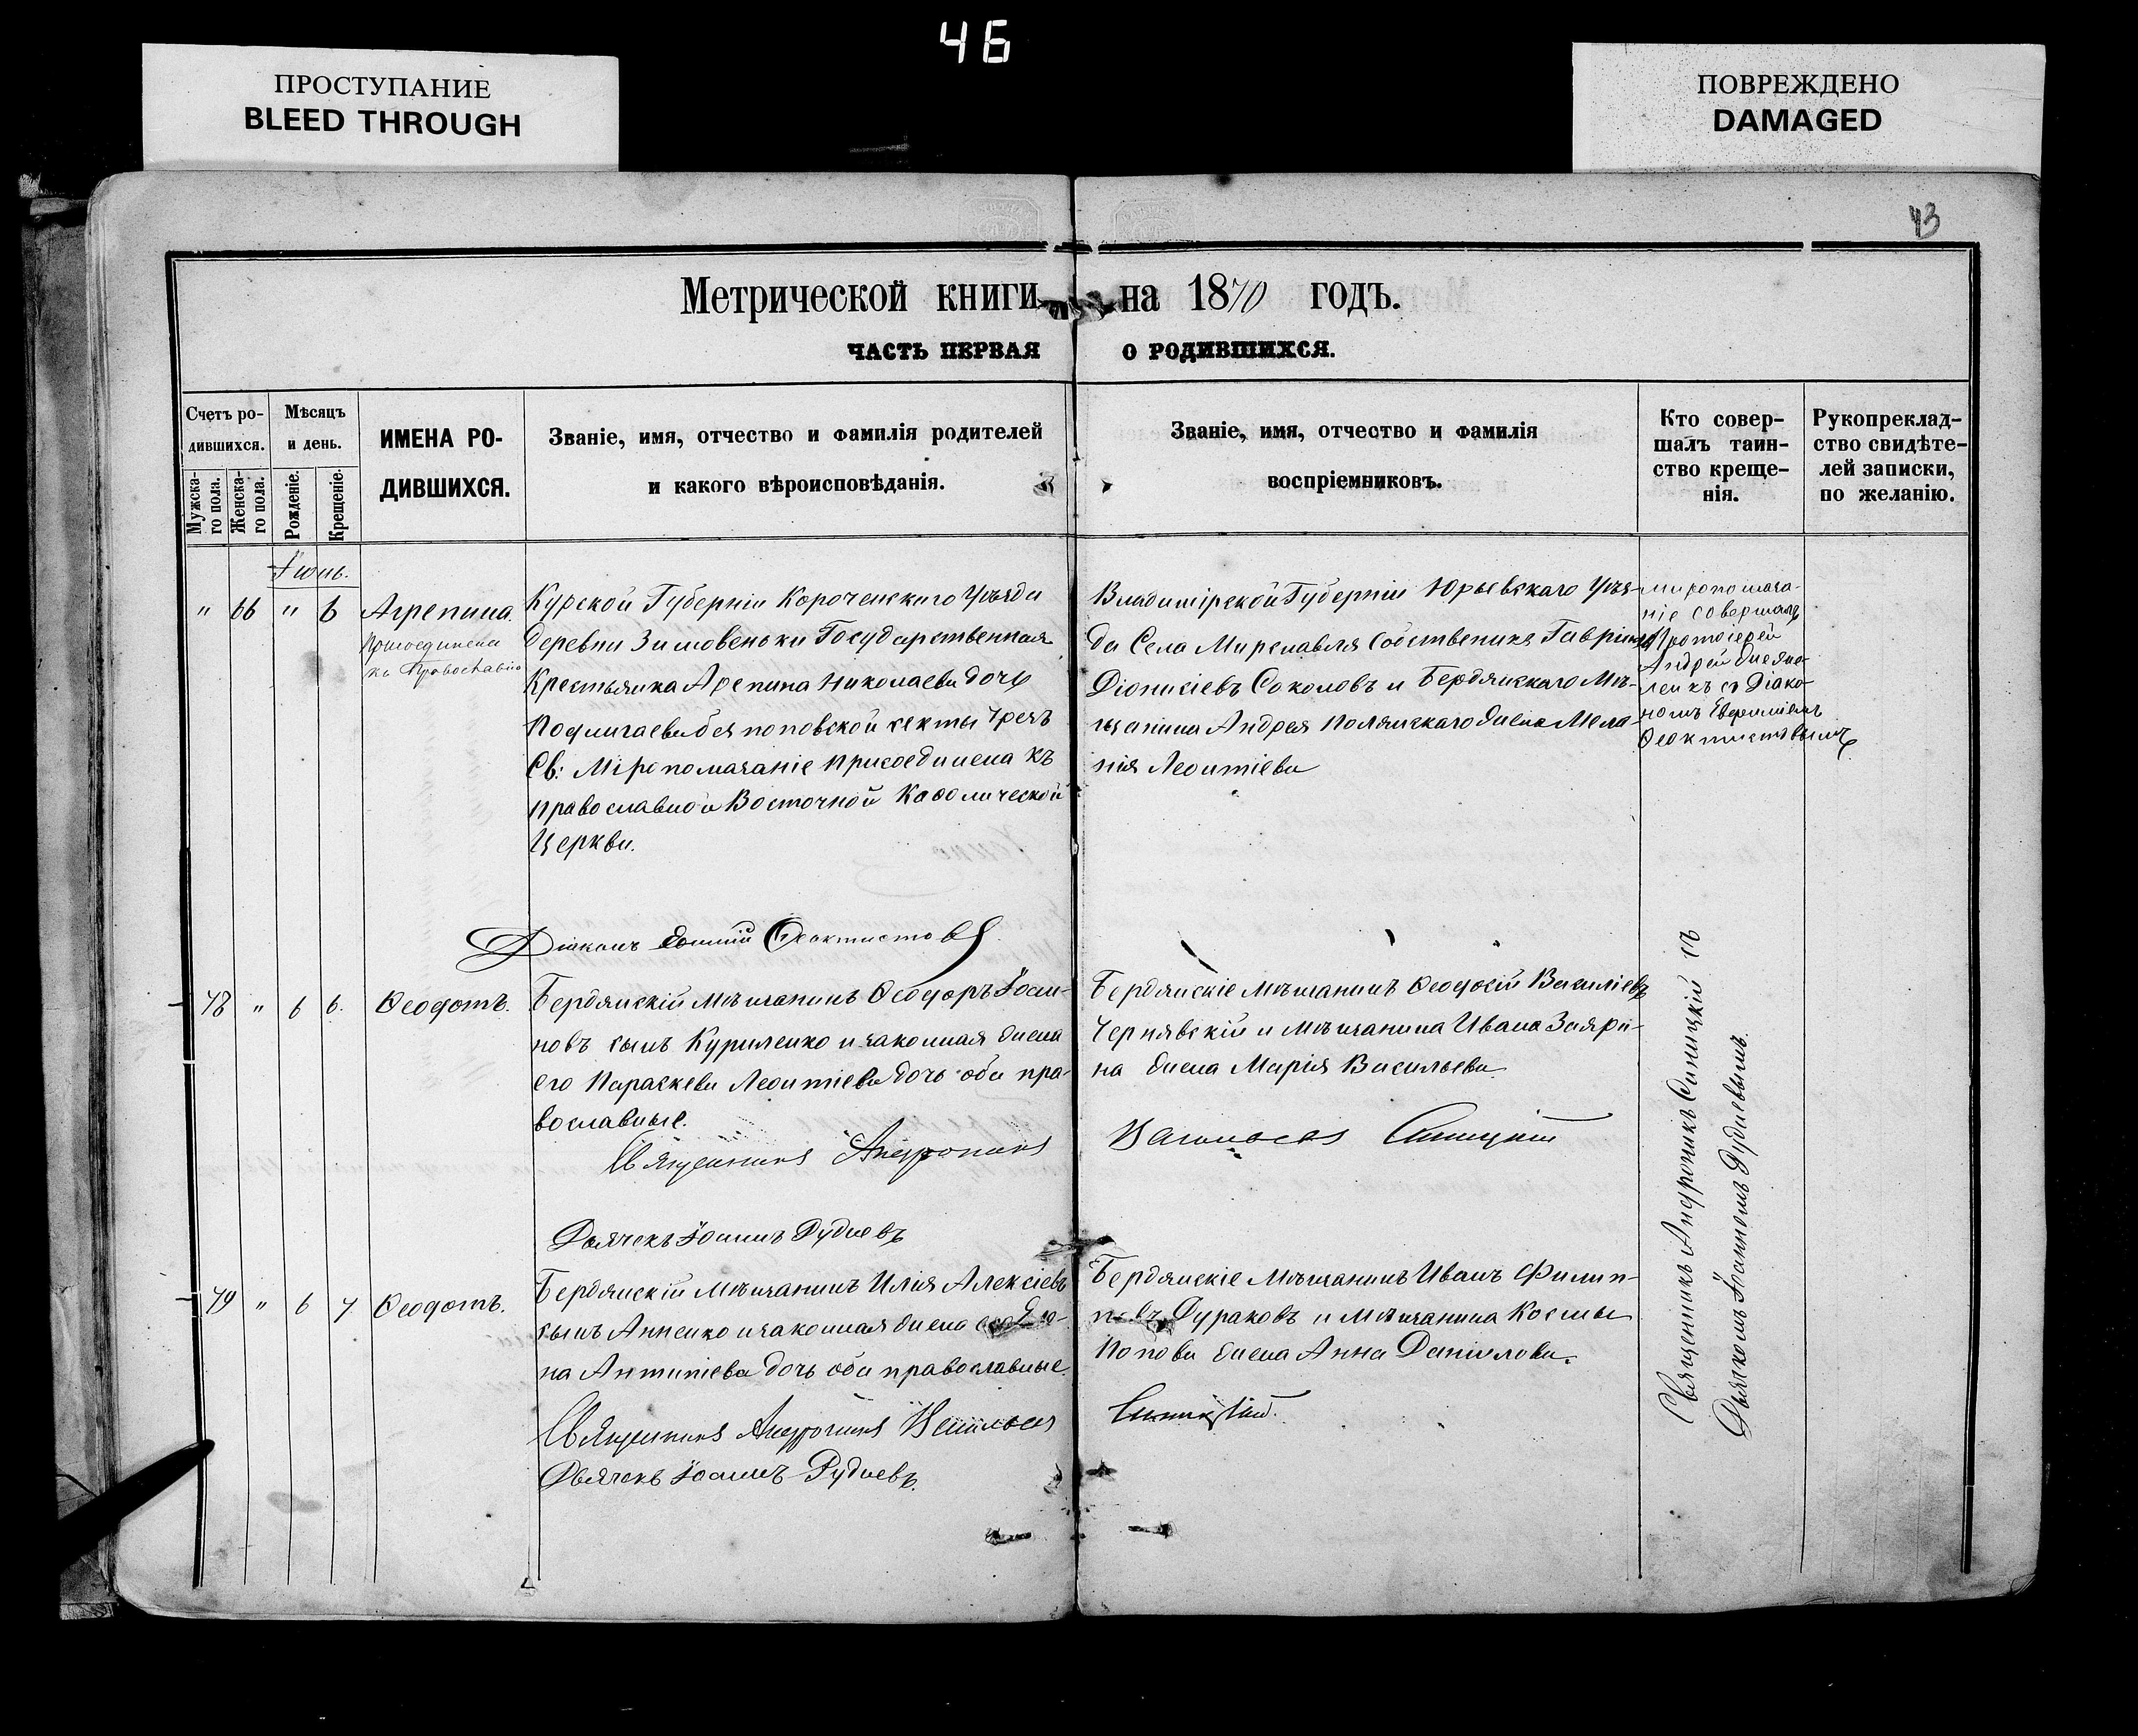 46
ПРОСТУПАНИЕ
BLEED THROUGH
ПОВРЕЖДЕНО
DAMAGED
43
Метрической книги на 1870 годъ.
ЧАСТЬ ПЕРВАЯ О РОДИВШИХСЯ.
Счетъ ро-
дившихся.
Мужска-
го пола.
Женска-
го пола.
Мѣсяцъ
и день.
Рожденіе.
Крещеніе.
ИМЕНА РО-
ДИВШИХСЯ.
Званіе, имя, отчество и фамилія родителей
и какого вѣроисповѣданія.
Званіе, имя, отчество и фамилія
воспріемниковъ.
Кто совер-
шалъ таин-
ство креще-
нія.
Рукоприклад-
ство свидѣте-
лей записки,
по желанію.
Іюнь.
" 66 " 6 Агрепина.
Присоединена
къ Православію
Курской Губерніи Короченскаго Уѣзда
деревни Зимовеньки Государственная
Крестьянка Агрепина Николаева дочь
безпоповской секты чрезъ
Св: Мѵропомазаніе присоединена къ
православной Восточной Каѳолической
Церкви.
Владимірской Губерніи Юрьевскаго Уѣз-
да Села Мирславля Собственикъ Гавріилъ
Діонисіевъ Соколовъ и Бердянскаго Мѣ-
щанина Андрея Полянскаго жена Мела-
нія Леонтіева
Миропомаза-
ніе совершалъ
Протоіерей
Андрей
съ Діако-
номъ
Ѳеоктистовымъ
Діаконъ Ѳеоктистовъ
48 " 6 6. Ѳеодотъ.
Бердянскій Мѣщанинъ Ѳеодоръ Іоан-
новъ сынъ Куриленко и законная жена
его Параскева Леонтіева дочь оба пра-
вославные.
Бердянскіе Мѣщанинъ Ѳеодосій Василіевъ
Чернявскій и Мѣщанина Ивана Заяри-
на жена Марія Васильева
Священникъ Андроникъ Васильевъ Синицкій
Дьячекъ Іоаннъ Рудневъ
49 " 6 7 Ѳеодотъ.
Бердянскій Мѣщанинъ Илія Алексіевъ
сынъ Анненко и законная жена его
на Антипіева дочь оба православные.
Бердянскіе Мѣщанинъ Иванъ Филип-
повъ Дураковъ и Мѣщанина Космы
Попова жена Анна Даніилова.
Священникъ Андроникъ Васильевъ Синицкій.
Дьячекъ Іоаннъ Рудневъ.
Священникъ Андроникъ Синицкій съ
Дьячкомъ Іоанномъ Рудневымъ.